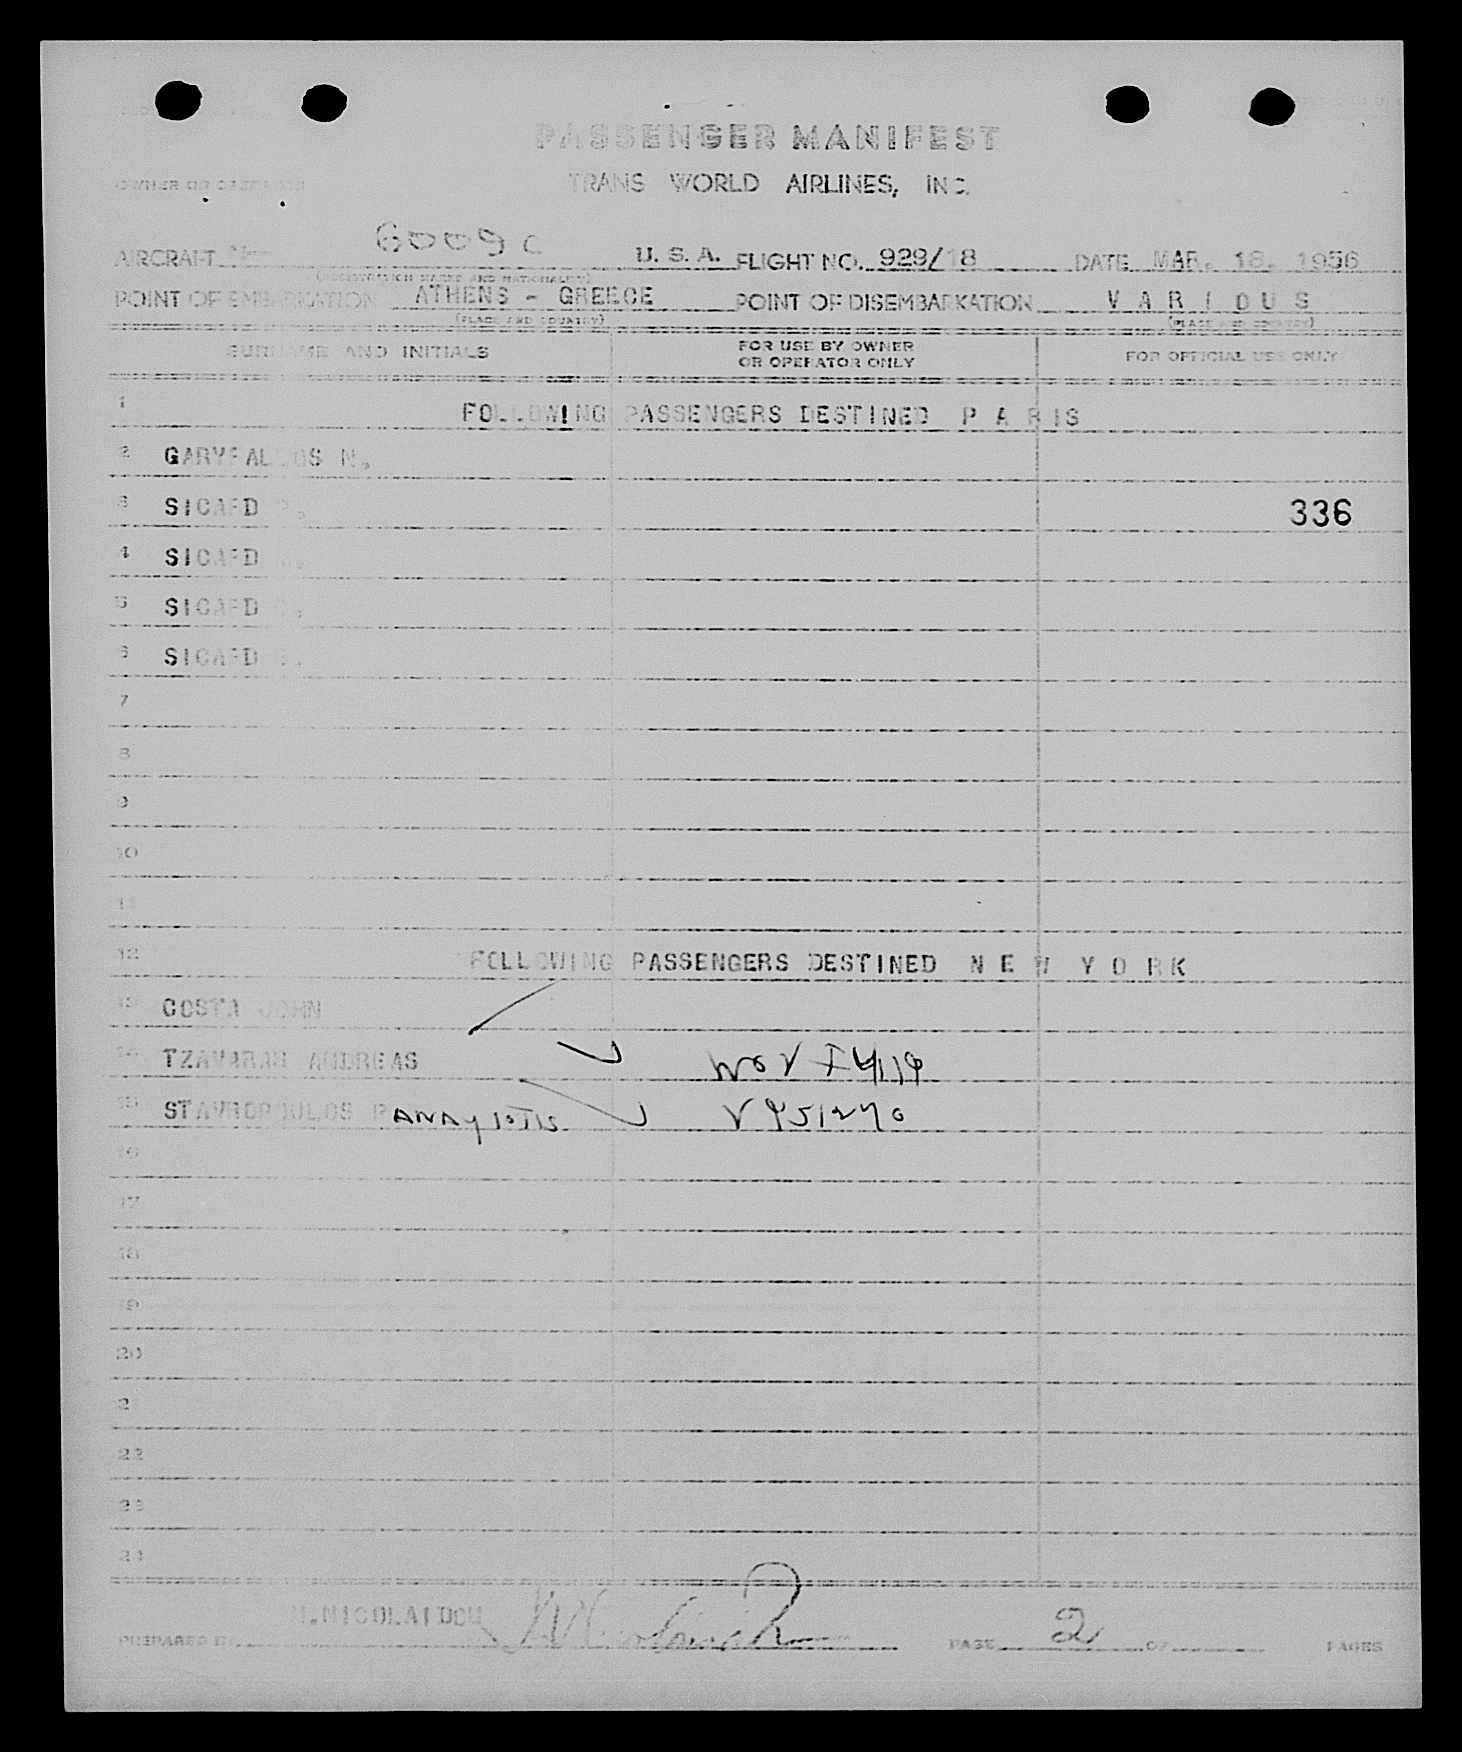 PASSENGER MANIFEST
TRANS WORLD AIRLINES, INC.
OWNER OR OPERATOR
AIRCRAFT 6009C U.S.A. FLIGHT NO. 929/18 DATE MAR. 18. 1956
(REGISTRATION MARKS AND NATIONALITY)
POINT OF EMBARKATION ATHENS - GREECE POINT OF DISEMBARKATION VARIOUS
(PLACE AND COUNTRY) (PLACE AND COUNTRY)
SURNAME AND INITIALS FOR USE BY OWNER OR OPERATOR ONLY FOR OFFICIAL USE ONLY
1 FOLLOWING PASSENGERS DESTINED P A R I S
2 GARYFALLOS N.
3 SICARD 336
4 SICARD
5 SICARD
6 SICARD
7
8
9
10
11
12 FOLLOWING PASSENGERS DESTINED N E W Y O R K
13 COSTA JOHN
14 TZAVARAS ANDREAS
15 STAVROPOULOS PANAYIOTIS V951270
16
17
18
19
20
21
22
23
24
PREPARED BY M.NICOLAIDOU PAGE 2 OF PAGES